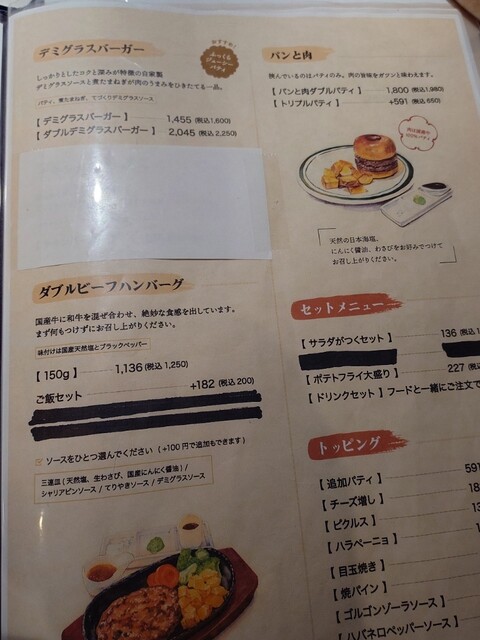 デミグラスバーガー
おすすめ!
ふっくら
ジューシー
パティ
しっかりとしたコクと深みが特徴の自家製
デミグラスソースと煮たまねぎが肉のうまみをひきたてる一品。
パティ、煮たまねぎ、てづくりデミグラスソース
【 デミグラスバーガー 】 1,455 (税込1,600)
【 ダブルデミグラスバーガー 】 2,045 (税込 2,250)
ダブルビーフハンバーグ
国産牛に和牛を混ぜ合わせ、絶妙な食感を出しています。
まず何もつけずにお召し上がりください。
味付けは国産天然塩とブラックペッパー
【 150g 】 1,136 (税込 1,250)
ご飯セット +182 (税込 200)
ソースをひとつ選んでください ( +100 円で追加もできます )
三連皿 ( 天然塩、生わさび、国産にんにく醤油 ) /
シャリアピンソース / てりやきソース / デミグラスソース
パンと肉
挟んでいるのはパティのみ。肉の旨味をガツンと味わえます。
【 パンと肉ダブルパティ 】 1,800 (税込1,980)
【 トリプルパティ 】 +591 (税込 650)
100%パティ
天然の日本海塩、
にんにく醤油、わさびをお好みでつけて
お召し上がりください。
セットメニュー
【 サラダがつくセット 】 136 (税込
【 ポテトフライ大盛り 】 227 (税
【 ドリンクセット 】 フードと一緒にご注文で
トッピング
【 追加パティ 】 591
【 チーズ増し 】 18
【 ピクルス 】 13
【 ハラペーニョ 】
【 目玉焼き 】
【 焼パイン 】
【 ゴルゴンゾーラソース 】
【 ハバネロペッパーソース 】